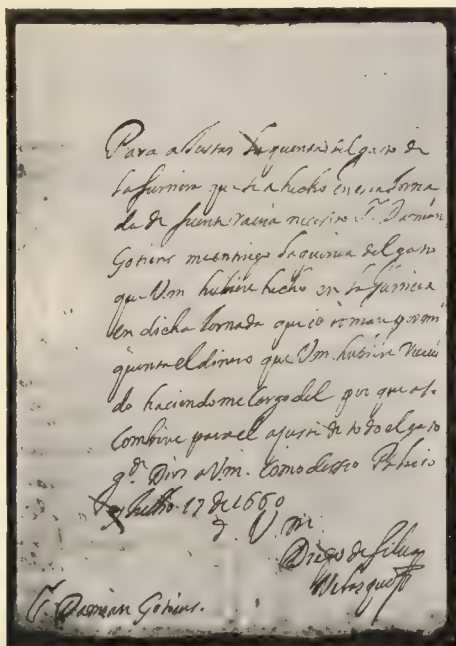 Para aJustar la quenta del gasto de
la furriera que se a hecho en esta Jorna
da de fuente Ravia necesito S.r Damian
Gotiens me entriege la quenta del gasto
que Vm hubiere hecho en la furriera
en dicha Jornada que io tomare por mi
quenta el dinero que Vm. hubiere Recivi
do haciendome cargo del por que asi
combiene para el ajuste de todo el gasto
g.de Dios a Vm. como desseo Palacio
y Jullio 17 de 1660
d. V. m.
Diego de Silua
Velazquez
S.r Damian Gotiens.